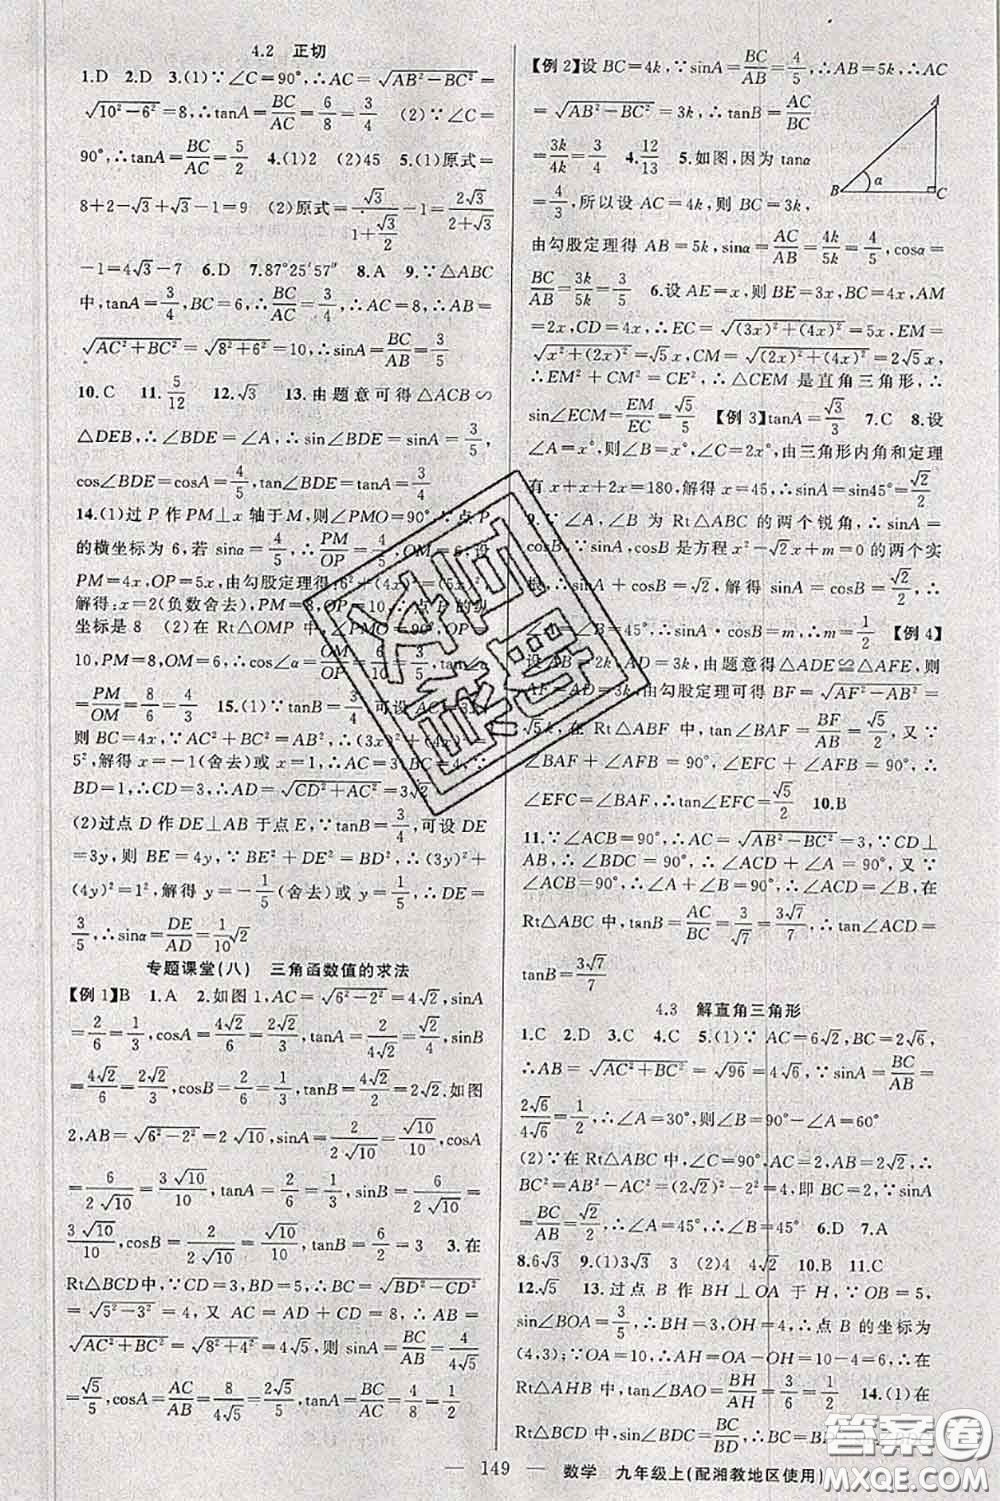 4.2 正切
1.D 2.D 3.(1)∵∠C=90°,∴AC=√(AB²-BC²)=
√(10²-6²)=8,∴tanA=BC/AC=6/8=3/4 (2)∵∠C=
90°,∴tanA=BC/AC=5/2 4.(1)2 (2)45 5.(1)原式=
8+2-√3+√3-1=9 (2)原式=√3/(1+√3/2)-1=2√3/(2+√3)
-1=4√3-7 6.D 7.87°25′57″ 8.A 9.∵△ABC
中,tanA=3/4,BC=6,∴BC/AC=3/4,∴AC=8,∴AB=
√(AC²+BC²)=√(8²+6²)=10,∴sinA=BC/AB=3/5
10.C 11.5/12 12.√3 13.由题意可得△ACB∽
△DEB,∴∠BDE=∠A,∴sin∠BDE=sinA=3/5,
cos∠BDE=cosA=4/5,tan∠BDE=tanA=3/4
14.(1)过P作PM⊥x轴于M,则∠PMO=90°∵点P
的横坐标为6,若sinα=4/5,∴PM/OP=4/5,∵OM=6,设
PM=4x,OP=5x,由勾股定理得6²+(4x)²=(5x)²
解得:x=2(负数舍去),PM=8,OP=10,∴点P的纵
坐标是8 (2)在Rt△OMP中,∠PMO=90°,OP=
10,PM=8,OM=6,∴cosα=6/10=3/5,tanα
=PM/OM=8/6=4/3 15.(1)∵tanB=3/4,可设AC=3x,
则BC=4x,∵AC²+BC²=AB²,∴(3x)²+(4x)²=
5²,解得x=-1(舍去)或x=1,∴AC=3,BC=4,∵
BD=1,∴CD=3,∴AD=√(CD²+AC²)=3√2
(2)过点D作DE⊥AB于点E,∵tanB=3/4,可设DE
=3y,则BE=4y,∵BE²+DE²=BD²,∴(3y)²+
(4y)²=1²,解得y=-1/5(舍去)或y=1/5,∴DE=
3/5,∴sinα=DE/AD=1/10√2
专题课堂(八) 三角函数值的求法
【例1】B 1.A 2.如图1,AC=√(6²-2²)=4√2,sinA
=2/6=1/3,cosA=4√2/6=2√2/3,tanA=2/4√2=√2/4,sinB=
4√2/6=2√2/3,cosB=2/6=1/3,tanB=4√2/2=2√2.如图
2,AB=√(6²-2²)=2√10,sinA=2/2√10=√10/10,cosA
=6/2√10=3√10/10,tanA=2/6=1/3,sinB=6/2√10=
3√10/10,cosB=2/2√10=√10/10,tanB=6/2=3 3.在
Rt△BCD中,∵CD=3,BD=5,∴BC=√(BD²-CD²)
=√(5²-3²)=4,又AC=AD+CD=8,∴AB=
√(AC²+BC²)=√(8²+4²)=4√5,则sinA=BC/AB=4/4√5
=√5/5,cosA=AC/AB=8/4√5=2√5/5,tanA=BC/AC=4/8=1/2
【例2】设BC=4k,∵sinA=BC/AB=4/5,∴AB=5k,∴AC
=√(AB²-BC²)=3k,∴tanB=AC/BC
=3k/4k=3/4 4.12/13 5.如图,因为tanα
=4/3,所以设AC=4k,则BC=3k,
由勾股定理得AB=5k,sinα=AC/AB=4k/5k=4/5,cosα=
BC/AB=3k/5k=3/5 6.设AE=x,则BE=3x,BC=4x,AM
=2x,CD=4x,∴EC=√((3x)²+(4x)²)=5x,EM=
√(x²+(2x)²)=√5x,CM=√((2x)²+(4x)²)=2√5x,
∴EM²+CM²=CE²,∴△CEM是直角三角形,∴
sin∠ECM=EM/EC=√5/5 【例3】tanA=√3/3 7.C 8.设
∠A=x°,则∠B=x°,∠C=2x°,由三角形内角和定理
有x+x+2x=180,解得x=45,∴sinA=sin45°=√2/2
9.∵∠A,∠B为Rt△ABC的两个锐角,∴sinA=
cosB,∵sinA,cosB是方程x²-√2x+m=0的两个实
根,∴sinA+cosB=√2,解得sinA=cosB=√2/2,∴
∠A=∠B=45°,∴sinA·cosB=m,∴m=1/2 【例4】
设BF=DE=2k,AD=3k,由题意得△ADE≌△AFE,则
AF=AD=3k,由勾股定理可得BF=√(AF²-AB²)=
√5k,在Rt△BAF中,tan∠BAF=BF/AB=√5/2,又∵
∠BAF+∠AFB=∠EFC+∠AFB=90°,∴
∠EFC=∠BAF,∴tan∠EFC=√5/2 10.B
11.∵∠ACB=90°,∴AC=√(AB²-BC²)=3,∵CD⊥
AB,∴∠BDC=90°,∴∠ACD+∠A=90°,又∵
∠ACB=90°,∴∠B+∠A=90°,∴∠ACD=∠B,在
Rt△ABC中,tanB=AC/BC=3/√7=3√7/7,∴tan∠ACD=
tanB=3√7/7
A
B α C
4.3 解直角三角形
1.C 2.D 3.C 4.C 5.(1)∵AC=6√2,BC=2√6,
∴AB=√(AC²+BC²)=√96=4√6,∴sinA=BC/AB=
2√6/4√6=1/2,∴∠A=30°,则∠B=90°-∠A=60°
(2)∵在Rt△ABC中,∠C=90°,AC=2,AB=2√2,∴
BC²=AB²-AC²=(2√2)²-2²=4,即BC=2,∵sinA
=BC/AB=√2/2,∴∠A=45°,∴∠B=45° 6.D 7.A
8.6√3 9.(1)3√3 3 (2)4 4√2 10.B 11.C
12.√5 13.过点B作BH⊥OA于H,∵OB=5,
sin∠BOA=3/5,∴BH=3,OH=4,∴点B的坐标为
(4,3);∵OA=10,∴AH=OA-OH=10-4=6,∴在
Rt△AHB中,tan∠BAO=BH/AH=3/6=1/2 14.(1)在
Rt△BCD中,sin∠BDC=BC/BD,∴BC=BD
149
数学 九年级上(配湘教地区使用)
答案圈
MXQE.COM